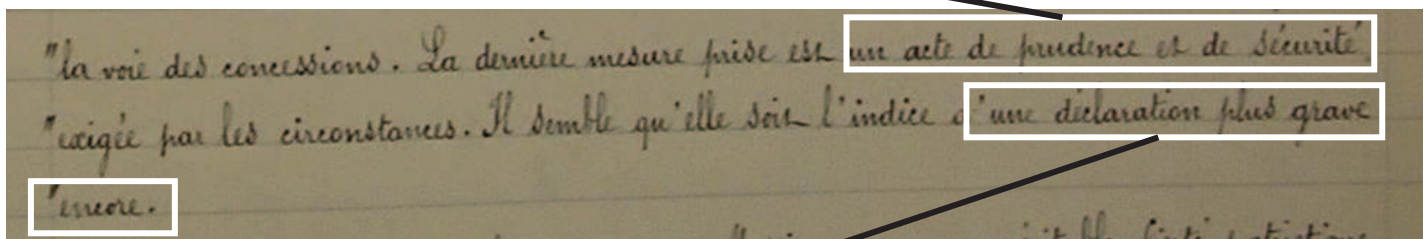 "la voie des concessions. La dernière mesure prise est un acte de prudence et de sécurité
"exigée par les circonstances. Il semble qu'elle soit l'indice d'une déclaration plus grave
"encore.